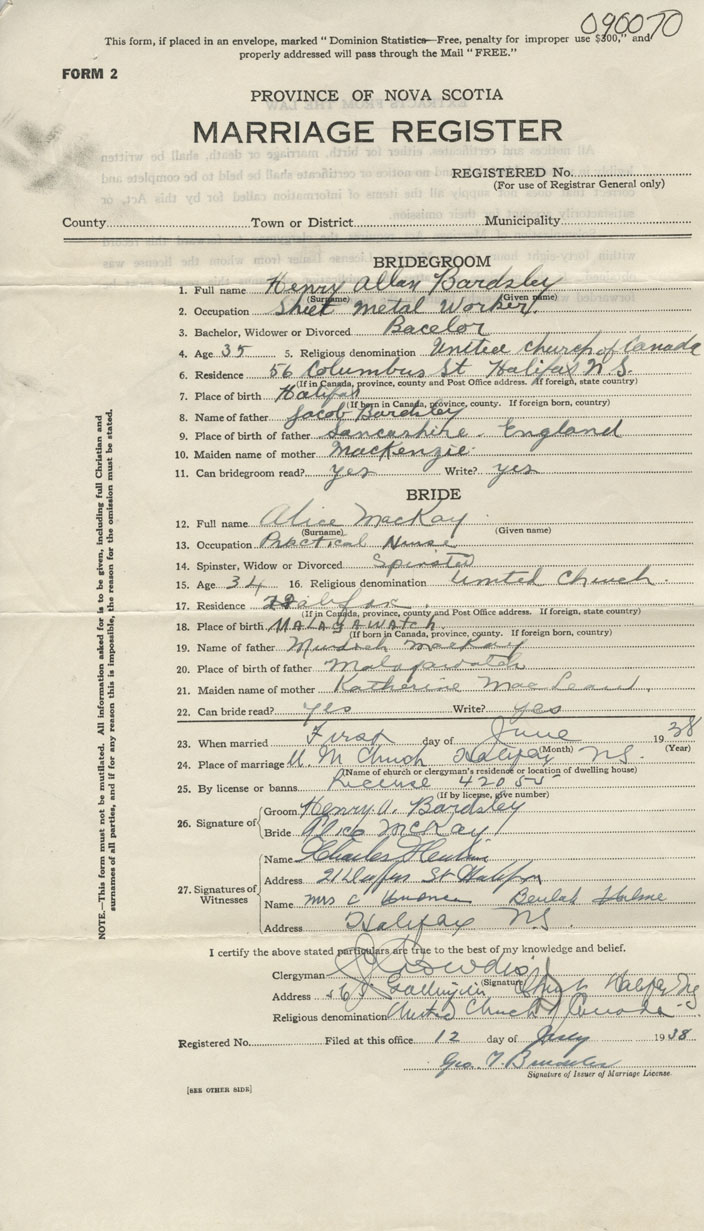 090070
This form, if placed in an envelope, marked "Dominion Statistics—Free, penalty for improper use $300," and
properly addressed will pass through the Mail "FREE."
FORM 2
PROVINCE OF NOVA SCOTIA
MARRIAGE REGISTER
REGISTERED No.
(For use of Registrar General only)
County Town or District Municipality
BRIDEGROOM
1. Full name Henry Allan Bardsley
(Surname) (Given name)
2. Occupation Sheet Metal Worker.
3. Bachelor, Widower or Divorced Bacelor
4. Age 35 5. Religious denomination United Church of Canada
6. Residence 56 Columbus St Halifax N.S.
(If in Canada, province, county and Post Office address. If foreign, state country)
7. Place of birth Halifax
(If born in Canada, province, county. If foreign born, county)
8. Name of father Jacob Bardsley
9. Place of birth of father Lancashire. England
10. Maiden name of mother MacKenzie
11. Can bridegroom read? yes Write? yes
BRIDE
12. Full name Alice MacKay
(Surname) (Given name)
13. Occupation Practical Nurse
14. Spinster, Widow or Divorced
15. Age 34 16. Religious denomination United Church.
17. Residence Halifax.
(If in Canada, province, county and Post Office address. If foreign, state country)
18. Place of birth MALAGAWATCH.
(If born in Canada, province, county. If foreign born, county)
19. Name of father Murdoch MacKay
20. Place of birth of father Malagawatch
21. Maiden name of mother Katherine Mac
22. Can bride read? yes Write? yes
23. When married First day of June 1938
(Month) (Year)
24. Place of marriage Church Halifax N.S.
(Name of church or clergyman's residence or location of dwelling house)
25. By license or banns License
(If by license, give number)
26. Signature of Groom Henry A. Bardsley
Bride Alice McKay
27. Signatures of Witnesses
Name Charles
Address 21 St Halifax
Name Mrs C Beulah
Address Halifax N.S.
I certify the above stated particulars are true to the best of my knowledge and belief.
Clergyman
(Signature)
Address Halifax NS
Religious denomination United Church of Canada
Registered No. Filed at this office 12 day of July 1938
Geo. T.
Signature of Issuer of Marriage License.
[SEE OTHER SIDE]
NOTE.—This form must not be mutilated. All information asked for is to be given, including full Christian and
surnames of all parties, and if for any reason this is impossible, the reason for the omission must be stated.